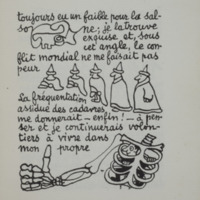 toujours eu un faible pour la sal-
so ne; je la trouve
exquise et, sous
cet angle, le con-
flit mondial ne me faisait pas
peur
La fréquentation
assidue des cadavres
me donnerait – enfin! – à pen-
ser et je continuerais volon-
tiers à vivre dans
mon propre